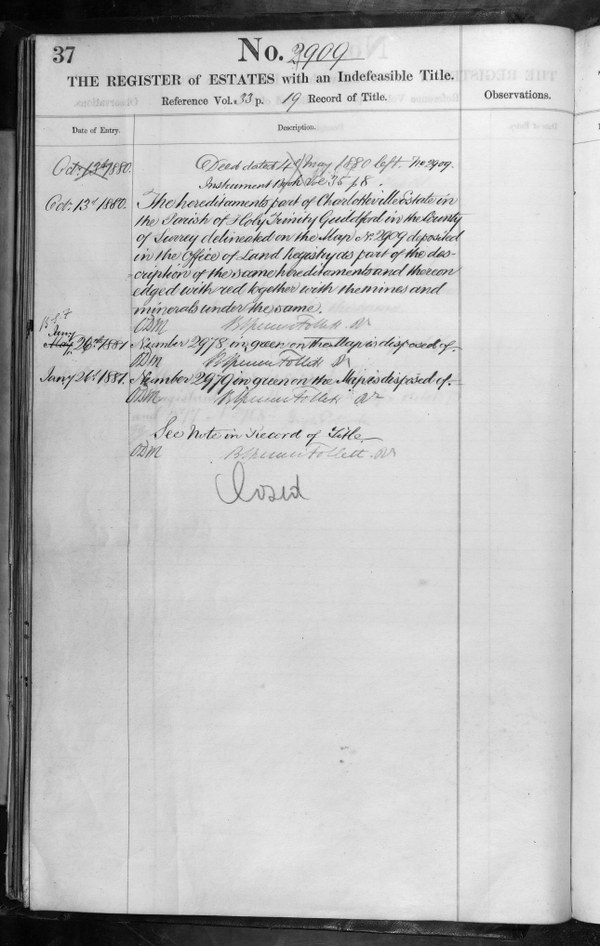 37
No. 2909
THE REGISTER of ESTATES with an Indefeasible Title.
Reference Vol. 33 p. 19 Record of Title.
Observations.
Date of Entry.
Description.
Oct. 13th 1880.
Deed dated 4th May 1880 left No 2909.
Instrument Book Vol 35 p 8.
Oct. 13th 1880.
The hereditaments part of Charlotteville Estate in
the Parish of Holy Trinity Guildford in the County
of Surrey delineated on the Map No. 2909 deposited
in the Office of Land Registry as part of the des-
=cription of the same hereditaments and thereon
edged with red together with the mines and
minerals under the same.
ODM B Spencer Follett. Rr
B S F
Jany
May 26th 1881
Number 2978 in green on the Map is disposed of
ODM B Spencer Follett Rr
Jany 26th 1881.
Number 2979 in green on the Map is disposed of
ODM B Spencer Follett Rr
See Note in Record of Title
ODM B Spencer Follett. Rr
Closed